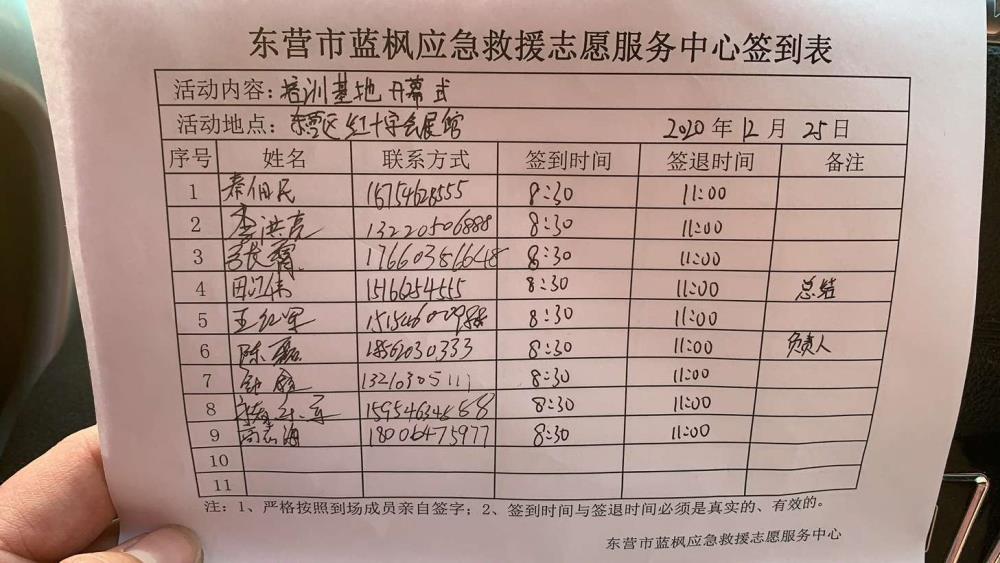 东营市蓝枫应急救援志愿服务中心签到表
活动内容：培训基地开幕式
活动地点：东营区红十字会展馆 2020年12月25日
序号 姓名 联系方式 签到时间 签退时间 备注
1 秦伯民 8:30 11:00
2 李洪亮 13220506888 8:30 11:00
3 17660386648 8:30 11:00
4 田江伟 8:30 11:00 总结
5 王红军 8:30 11:00
6 陈磊 18562030333 8:30 11:00 负责人
7 8:30 11:00
8 8:30 11:00
9 周志海 18006475977 8:30 11:00
10
11
注：1、严格按照到场成员亲自签字；2、签到时间与签退时间必须是真实的、有效的。
东营市蓝枫应急救援志愿服务中心